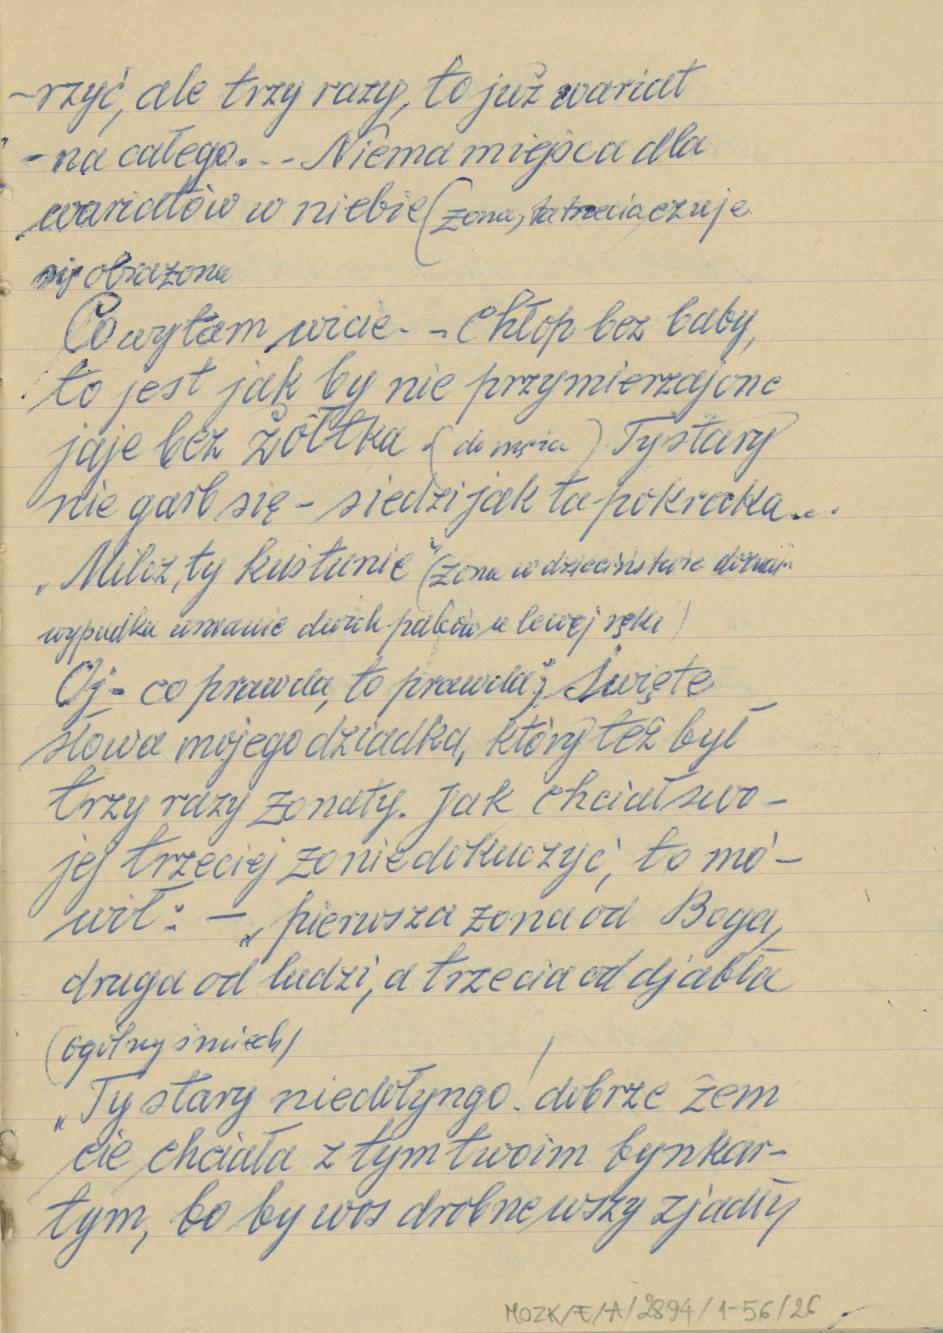 -rzyć, ale trzy razy, to już wariat
- na całego... - Niema miejsca dla
wariatów w niebie (żona, ta trzecia, czuje
się obrażona
Co wy tam wicie. - Chłop bez baby,
to jest jak by nie przymierzając
jaje bez żółtka. (do męża) Ty stary
nie garb się - siedzi jak ta pokraka...
"Milcz, ty kustunie" (żona w dzieciństwie doznała
wypadku urwanie dwóch palców u lewej ręki)
Oj - co prawda, to prawda; Święte
słowa mojego dziadka, który też był
trzy razy żonaty. Jak chciał swo-
jej trzeciej żonie dokuczyć, to mó-
wił: - "pierwsza żona od Boga,
druga od ludzi, a trzecia od djabła
(ogólny śmiech)
"Ty stary niedołyngo! dobrze żem
cie chciała z tym twoim bynkar-
tym, bo by wos drobne wszy zjadły
MOZK/E/A/2894/1-56/26